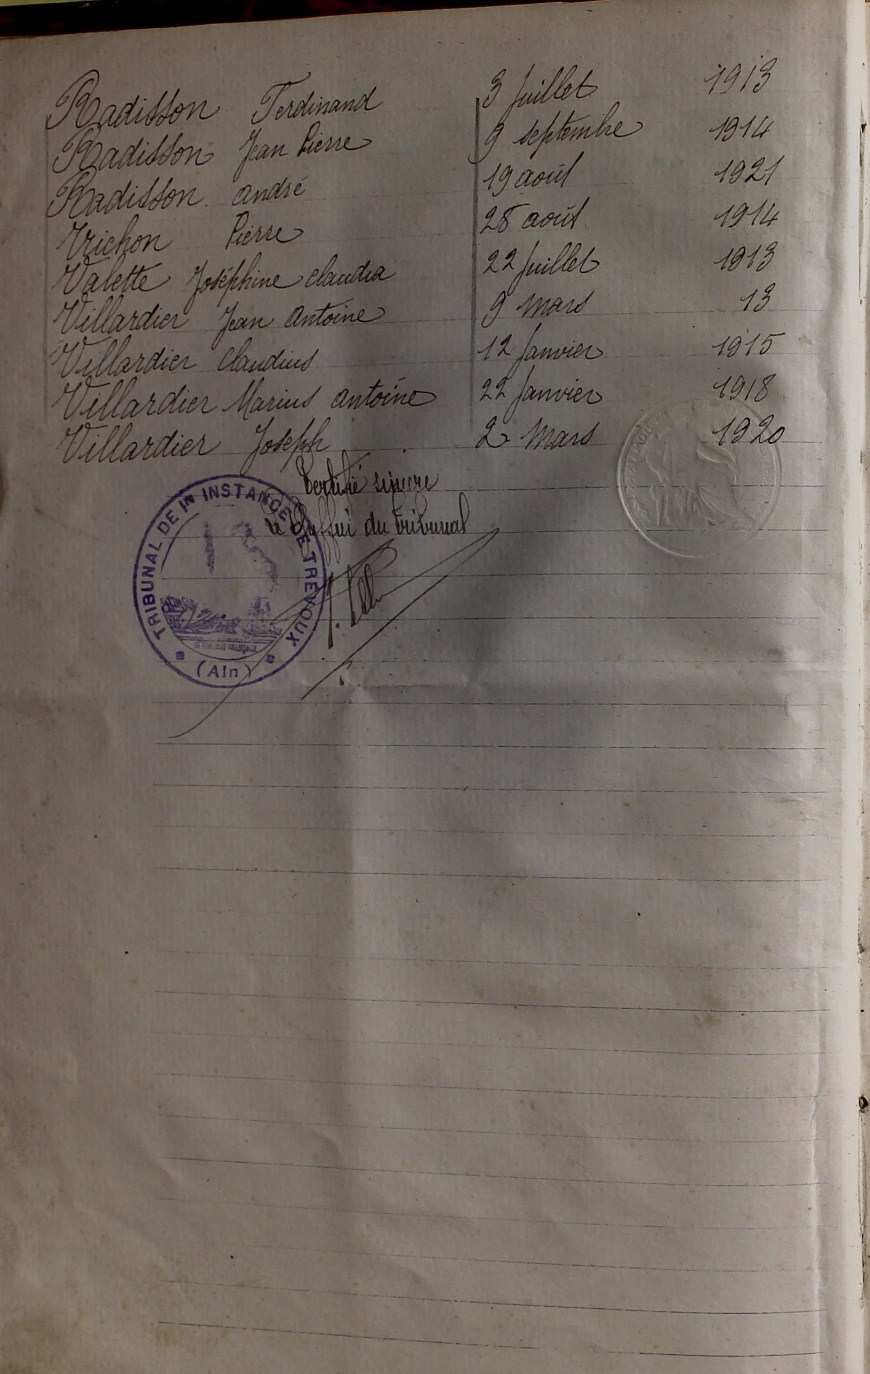 Radisson Ferdinand 3 Juillet 1913
Radisson Jean Pierre 9 septembre 1914
Radisson André 19 août 1921
Trichon Pierre 28 août 1914
Valette Joséphine Claudia 22 Juillet 1913
Villardier Jean Antoine 9 Mars 13
Villardier Claudius 12 Janvier 1915
Villardier Marius Antoine 22 Janvier 1918
Villardier Joseph 2 Mars 1920
Certifié sincère
Le Greffier du Tribunal
TRIBUNAL DE 1re INSTANCE DE TRÉVOUX
(AIN)